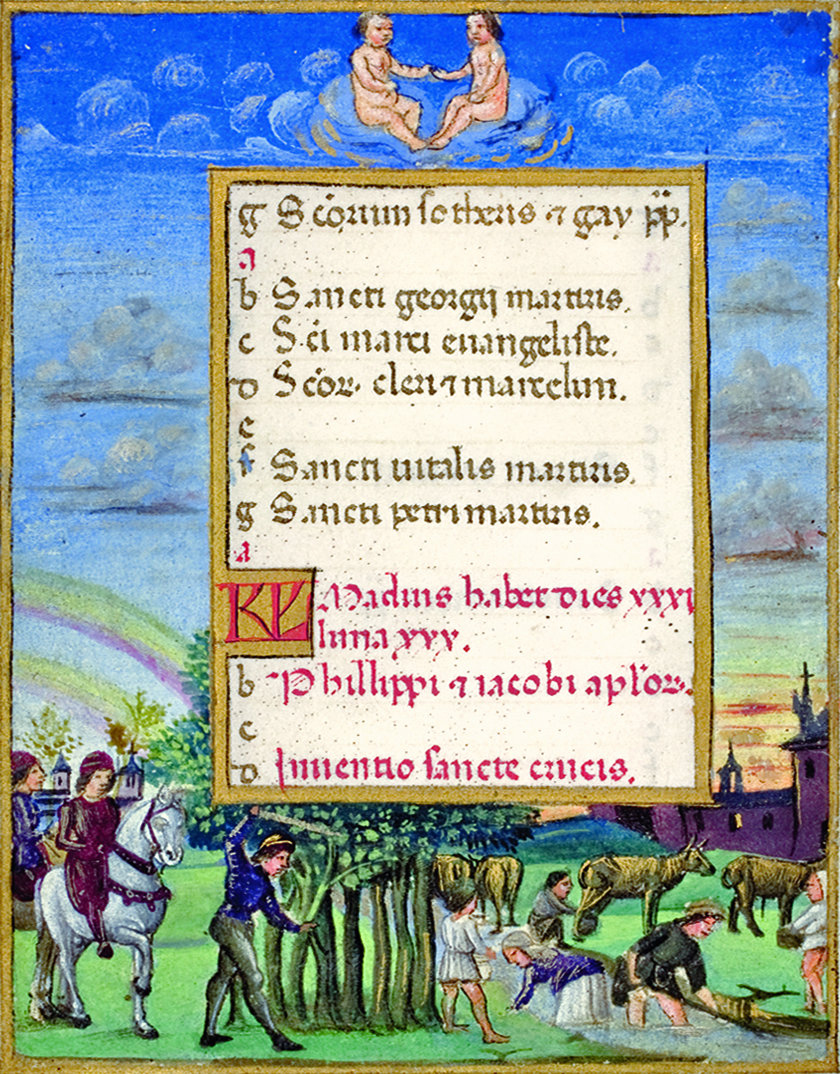 g Scorum sotheris et gay pp.
a
b Sancti georgij martiris.
c Sci marci euangeliste.
d Scor. cleti et marcelini.
e
f Sancti uitalis martiris.
g Sancti petri martiris.
a
KL Madius habet dies xxxi
luna xxx.
b Phillippi et iacobi aplor.
c
d Inuentio sancte crucis.